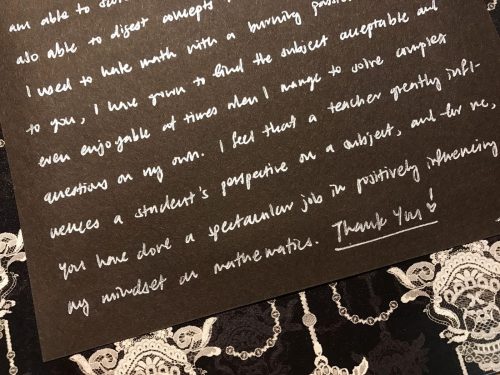 am able to
also able to digest concepts
I used to hate math with a burning passion
to you, I have grown to find the subject acceptable and
even enjoyable at times when I manage to solve complex
questions on my own. I feel that a teacher greatly infl-
uences a student's perspective on a subject, and for me,
you have done a spectacular job in positively influencing
my mindset on mathematics. Thank You!